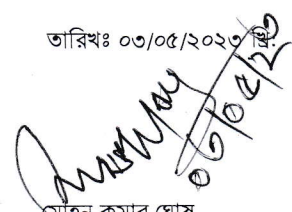 তারিখঃ ০৩/০৫/২০২৩ খ্রি.
০৩/০৫/২৩
মোহন কুমার ঘোষ